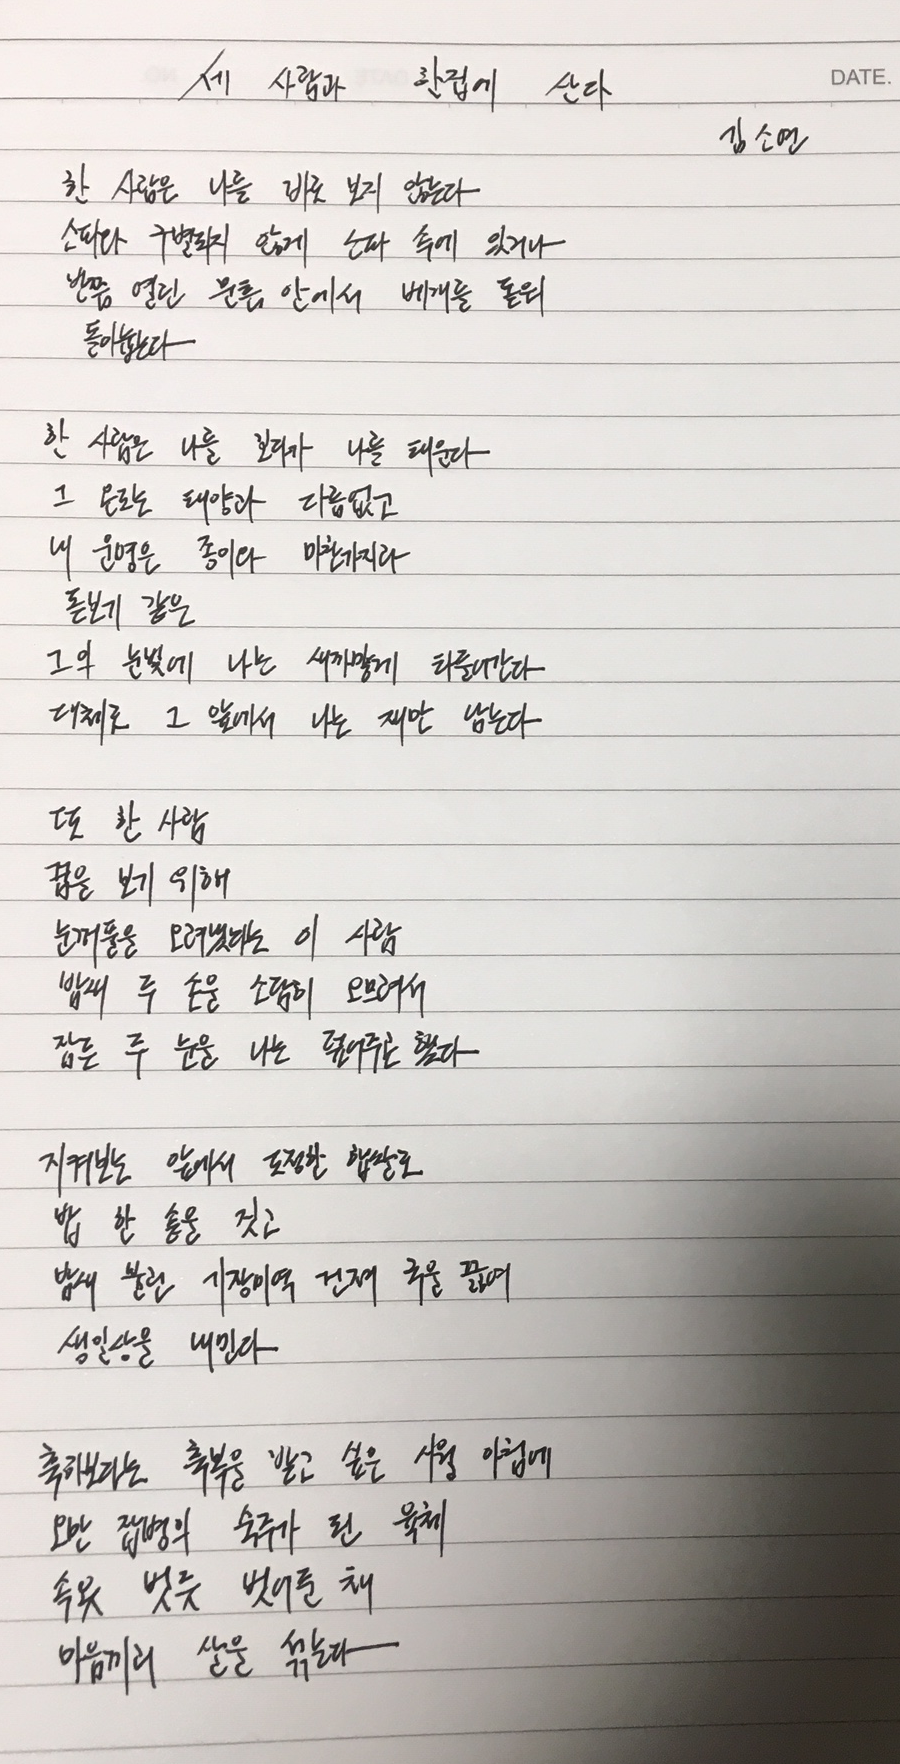 DATE.
세 사람과 한집에 산다
김소연
한 사람은 나를 바로 보지 않는다
소파와 구별되지 않게 소파 속에 있거나
반쯤 열린 문틈 안에서 베개를 돋워
돌아눕는다
한 사람은 나를 보다가 나를 태운다
그 온도는 태양과 다름없고
내 운명은 종이와 마찬가지라
돋보기 같은
그의 눈빛에 나는 새까맣게 타들어간다
대체로 그 앞에서 나는 재만 남는다
또 한 사람
꿈을 보기 위해
눈꺼풀을 오려냈다는 이 사람
밤새 두 손을 소담히 오므려서
잠든 두 눈을 나는 덮어주곤 했다
지켜보는 앞에서 도정한 햅쌀로
밥 한 솥을 짓고
밤새 불린 기장미역 건져 국을 끓여
생일상을 내민다
축하보다는 축복을 받고 싶은 시월 아침에
오만 잡병의 숙주가 된 육체
속옷 벗듯 벗어둔 채
마음끼리 살을 섞는다